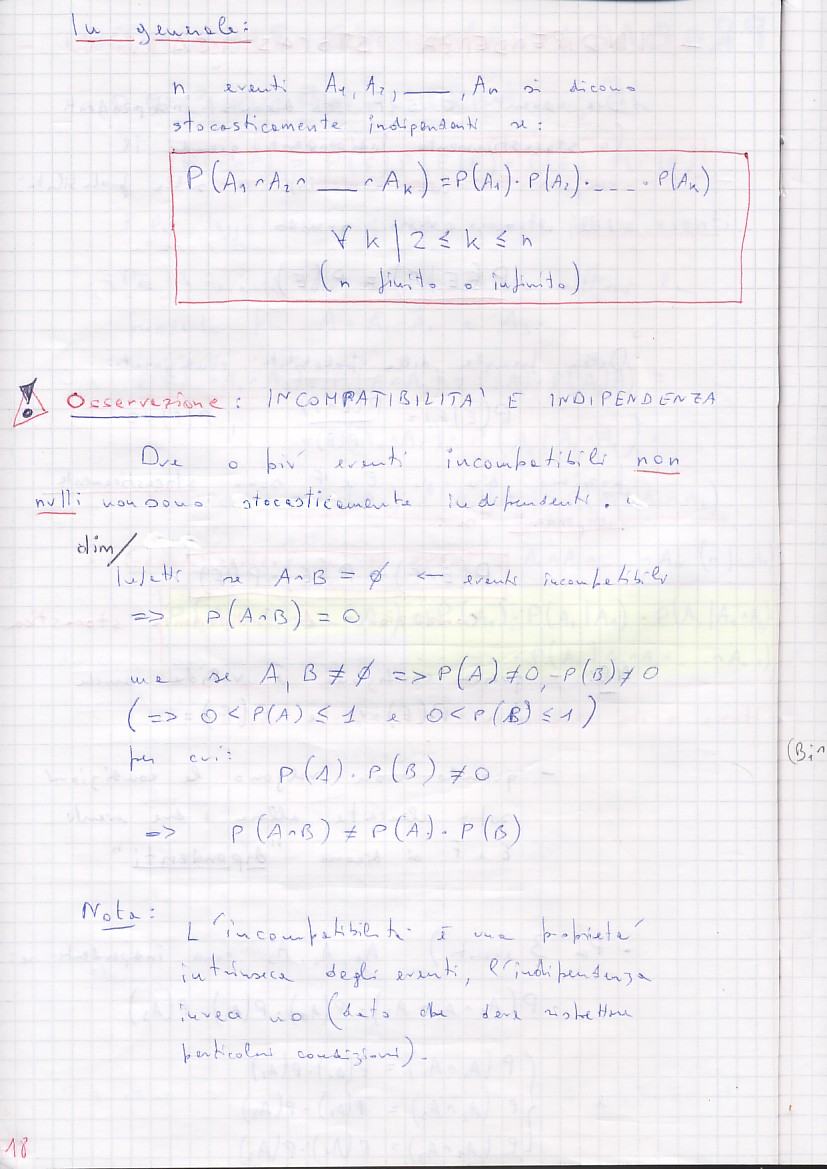 In generale:
n eventi A1, A2, ___, An si dicono
stocasticamente indipendenti se:
P(A1 ∩ A2 ∩ ___ ∩ Ak) = P(A1) · P(A2) · - - - · P(Ak)
∀ k | 2 ≤ k ≤ n
(n finito o infinito)
Osservazione: INCOMPATIBILITA' E INDIPENDENZA
Due o più eventi incompatibili non
nulli non sono stocasticamente indipendenti.
dim/
Infatti se A∩B = ∅ ← eventi incompatibili
=> P(A∩B) = 0
ma se A, B ≠ ∅ => P(A) ≠ 0, P(B) ≠ 0
(=> 0 < P(A) ≤ 1 e 0 < P(B) ≤ 1)
per cui:
P(A) · P(B) ≠ 0
=> P(A∩B) ≠ P(A) · P(B)
Nota:
L'incompatibilità è una proprietà
intrinseca degli eventi, l'indipendenza
invece no (dato che deve rispettare
particolari condizioni).
18